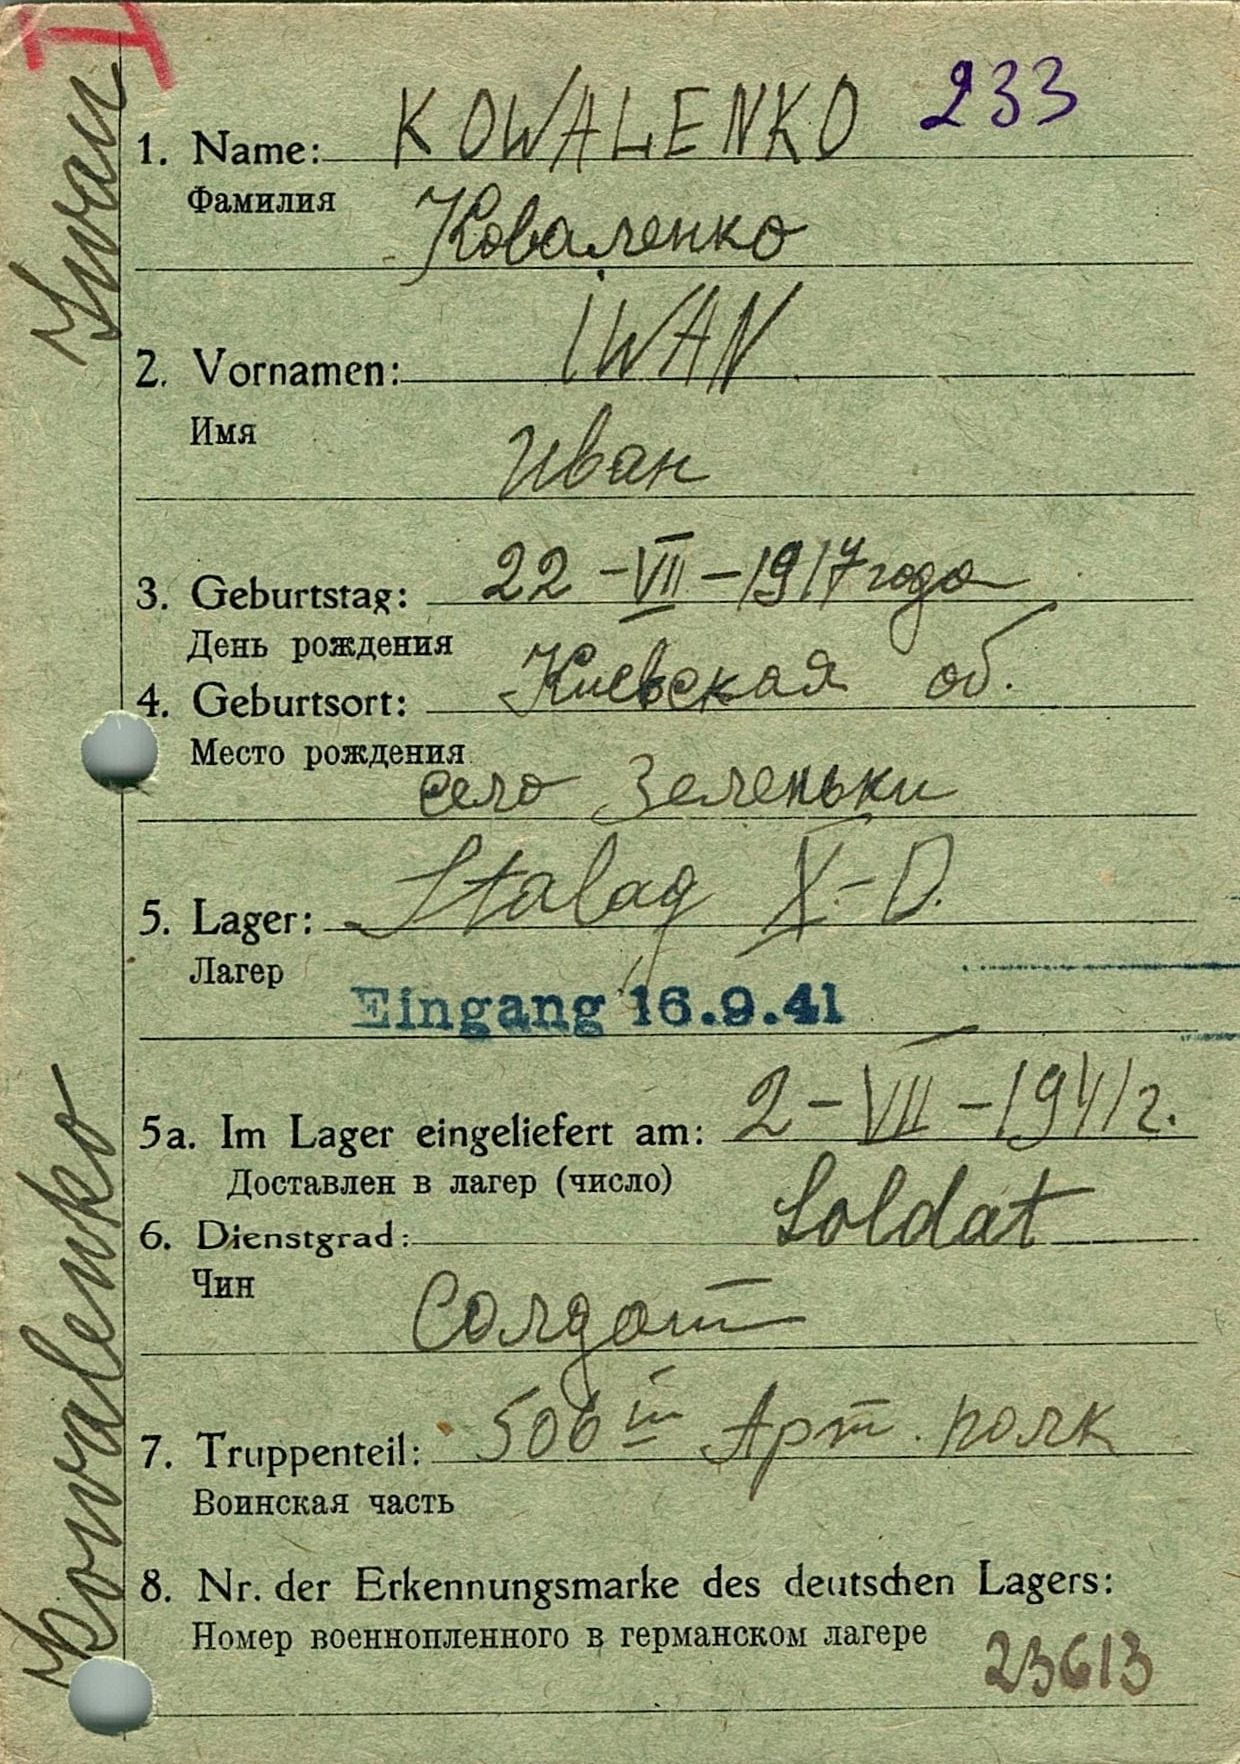 I
233
1. Name: KOWALENKO
Фамилия
Коваленко
2. Vornamen: IWAN
Имя
Иван
3. Geburtstag: 22-VII-1917 года
День рождения
4. Geburtsort: Киевская об.
Место рождения
село Зеленьки
5. Lager: Stalag X-D.
Лагер
Eingang 16.9.41
5a. Im Lager eingeliefert am: 2-VII-1941 г.
Доставлен в лагер (число)
6. Dienstgrad: Soldat
Чин
Солдат
7. Truppenteil: 506й Арт. полк
Воинская часть
8. Nr. der Erkennungsmarke des deutschen Lagers:
Номер военнопленного в германском лагере
23613
Kowalenko Iwan